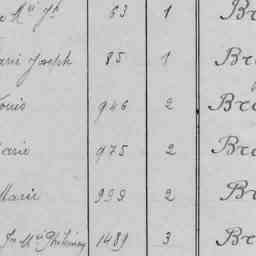 Mie Jh 63 1 Br
arie Joseph 85 1 Br
ouis 946 2 Br
arie 975 2 Br
Marie 999 2 Br
Jn Mie 1489 3 Br